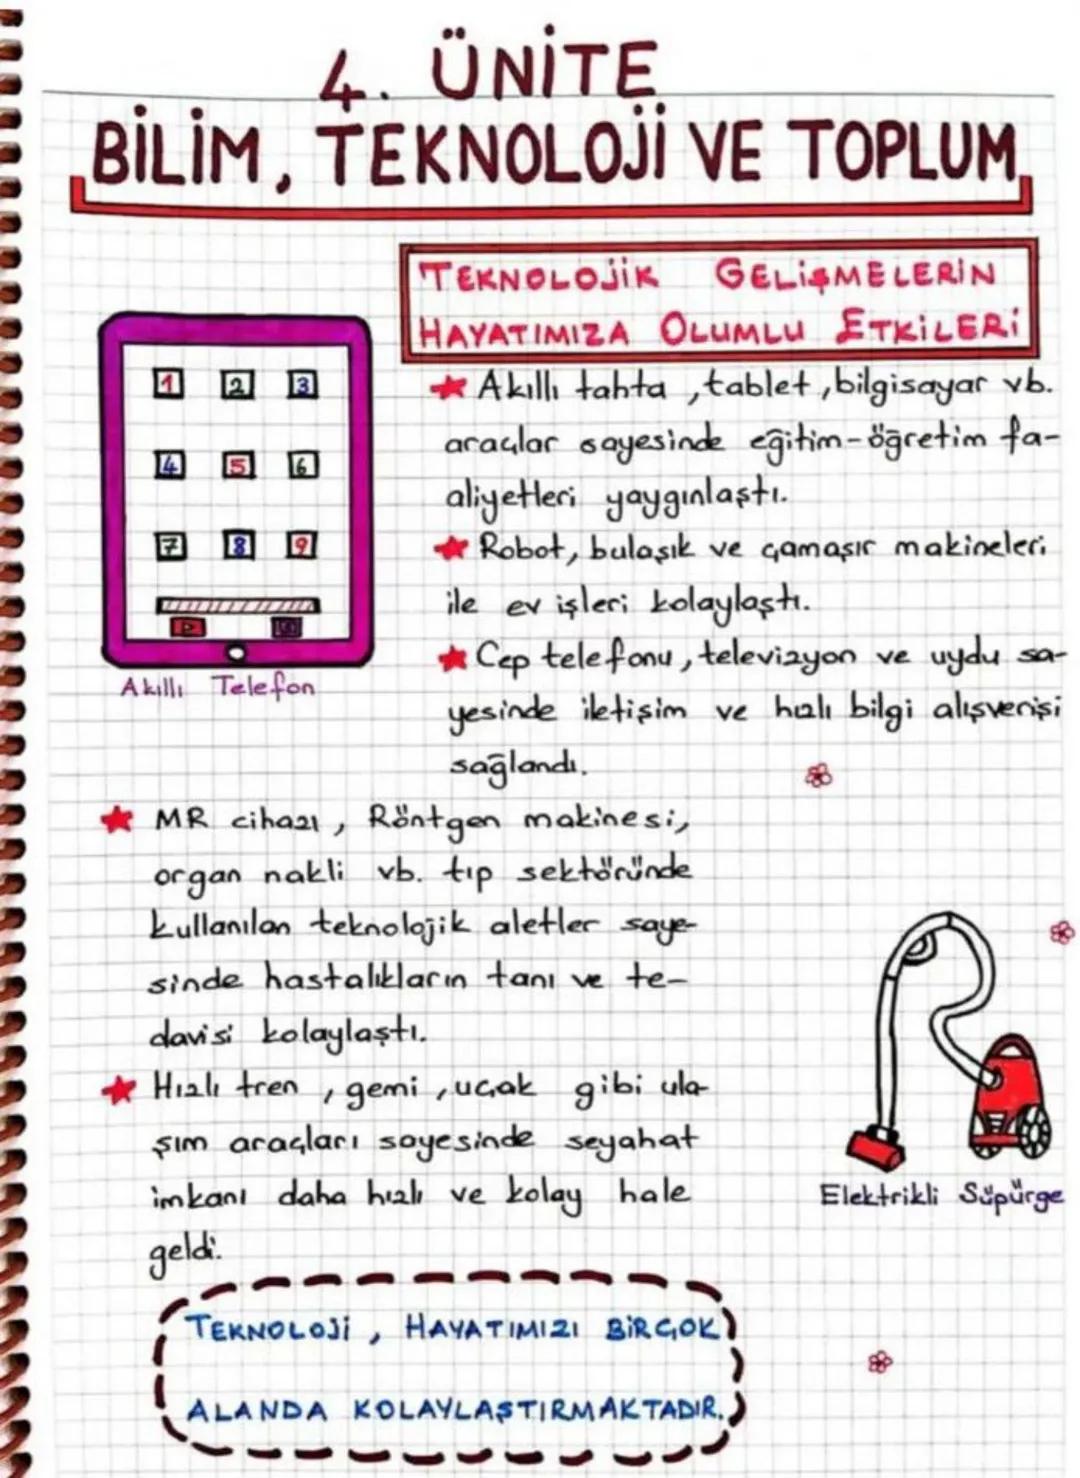 4. ÜNİTE
BİLİM, TEKNOLOJİ VE TOPLUM
TEKNOLOJİK GELİŞMELERİN
HAYATIMIZA OLUMLU ETKİLERİ
1 2 3
4 5 6
7 8 9
Akıllı Telefon
Akıllı tahta, tablet, bilgisayar vb.
araçlar sayesinde eğitim-öğretim fa-
aliyetleri yaygınlaştı.
Robot, bulaşık ve çamaşır makineleri
ile ev işleri kolaylaştı.
Cep telefonu, televizyon ve uydu sa-
yesinde iletişim ve hızlı bilgi alışverişi
sağlandı.
MR cihazı, Röntgen makinesi,
organ nakli vb. tıp sektöründe
kullanılan teknolojik aletler saye-
sinde hastalıkların tanı ve te-
davisi kolaylaştı.
Hızlı tren, gemi, uçak gibi ula-
şım araçları sayesinde seyahat
imkanı daha hızlı ve kolay hale
geldi.
Elektrikli Süpürge
TEKNOLOJİ, HAYATIMIZI BİRÇOK
ALANDA KOLAYLAŞTIRMAKTADIR.